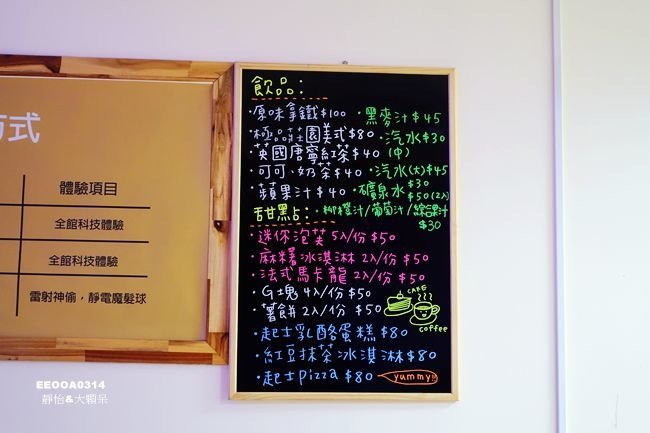 方式
體驗項目
全館科技體驗
全館科技體驗
雷射神偷，靜電魔髮球
飲品：
·原味拿鐵$100 ·黑麥汁$45
·極品莊園美式$80 ·汽水$30
·英國唐寧紅茶$40 (中)
·可可、奶茶$40 ·汽水(大)$45
·蘋果汁$40 ·礦泉水$30
$50(2入)
甜點： ·柳橙汁/葡萄汁/綜合果汁
$30
·迷你泡芙 5入/份 $50
·麻糬冰淇淋 2入/份 $50
·法式馬卡龍 2入/份 $50
·G塊 4入/份 $50
·薯餅 2入/份 $50
CAFE
coffee
·起士乳酪蛋糕 $80
·紅豆抹茶冰淇淋$80
·起士pizza $80 yummy!!
EEOOA0314
靜怡&大顆呆